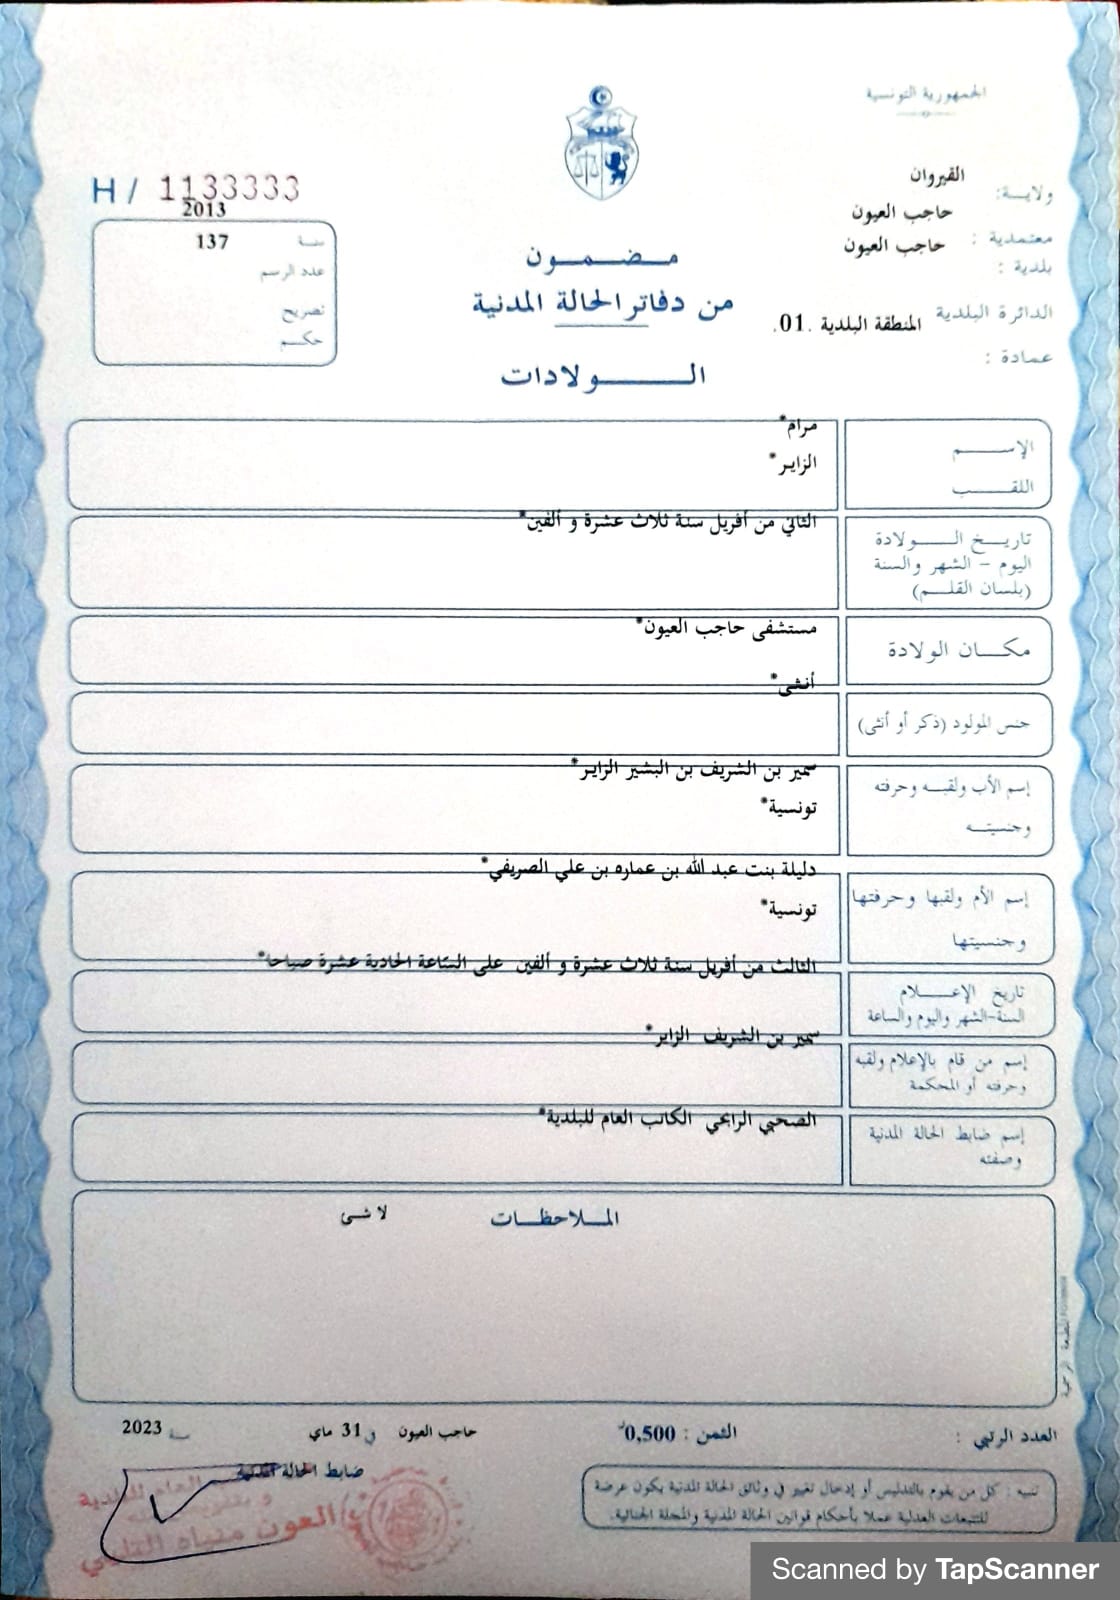 الجمهورية التونسية
ولايـــة: القيروان
معتمدية : حاجب العيون
بلدية : حاجب العيون
الدائرة البلدية المنطقة البلدية .01.
عمادة :
H / 1133333
2013
سنة 137
عدد الرسم
تصريح
حكـــم
مـــضـــمـــون
من دفاتر الحالة المدنية
الـــــولادات
الإســـــم مرام*
اللقـــــب الزاير*
تاريـــخ الـــــولادة الثاني من أفريل سنة ثلاث عشرة و ألفين*
اليوم - الشهر والسنة
(بلسان القلـــم)
مكـــان الولادة مستشفى حاجب العيون*
أنثى*
جنس المولود (ذكر أو أنثى)
سمير بن الشريف بن البشير الزاير*
إسم الأب ولقبـــه وحرفته
وجنسيتـــه تونسية*
دليلة بنت عبد الله بن عماره بن علي الصريفي*
إسم الأم ولقبها وحرفتها
وجنسيتها تونسية*
الثالث من أفريل سنة ثلاث عشرة و ألفين على الساعة الحادية عشرة صباحا*
تاريخ الإعـــــلام
السنة-الشهر واليوم والساعة
سمير بن الشريف الزاير*
إسم من قام بالإعلام ولقبه
وحرفته أو المحكمة
الصحبي الرابحي الكاتب العام للبلدية*
إسم ضابط الحالة المدنية
وصفته
المـــلاحظـــات لا شى
المطبعة الرسمية
العدد الرتبي : الثمن : 0,500د حاجب العيون في 31 ماي سنة 2023
ضابط الحالة المدنية
تنبيه : كل من يقوم بالتدليس أو إدخال تغيير في وثائق الحالة المدنية يكون عرضة
للتتبعات العدلية عملا بأحكام قوانين الحالة المدنية والمجلة الجنائية.
العون
Scanned by TapScanner